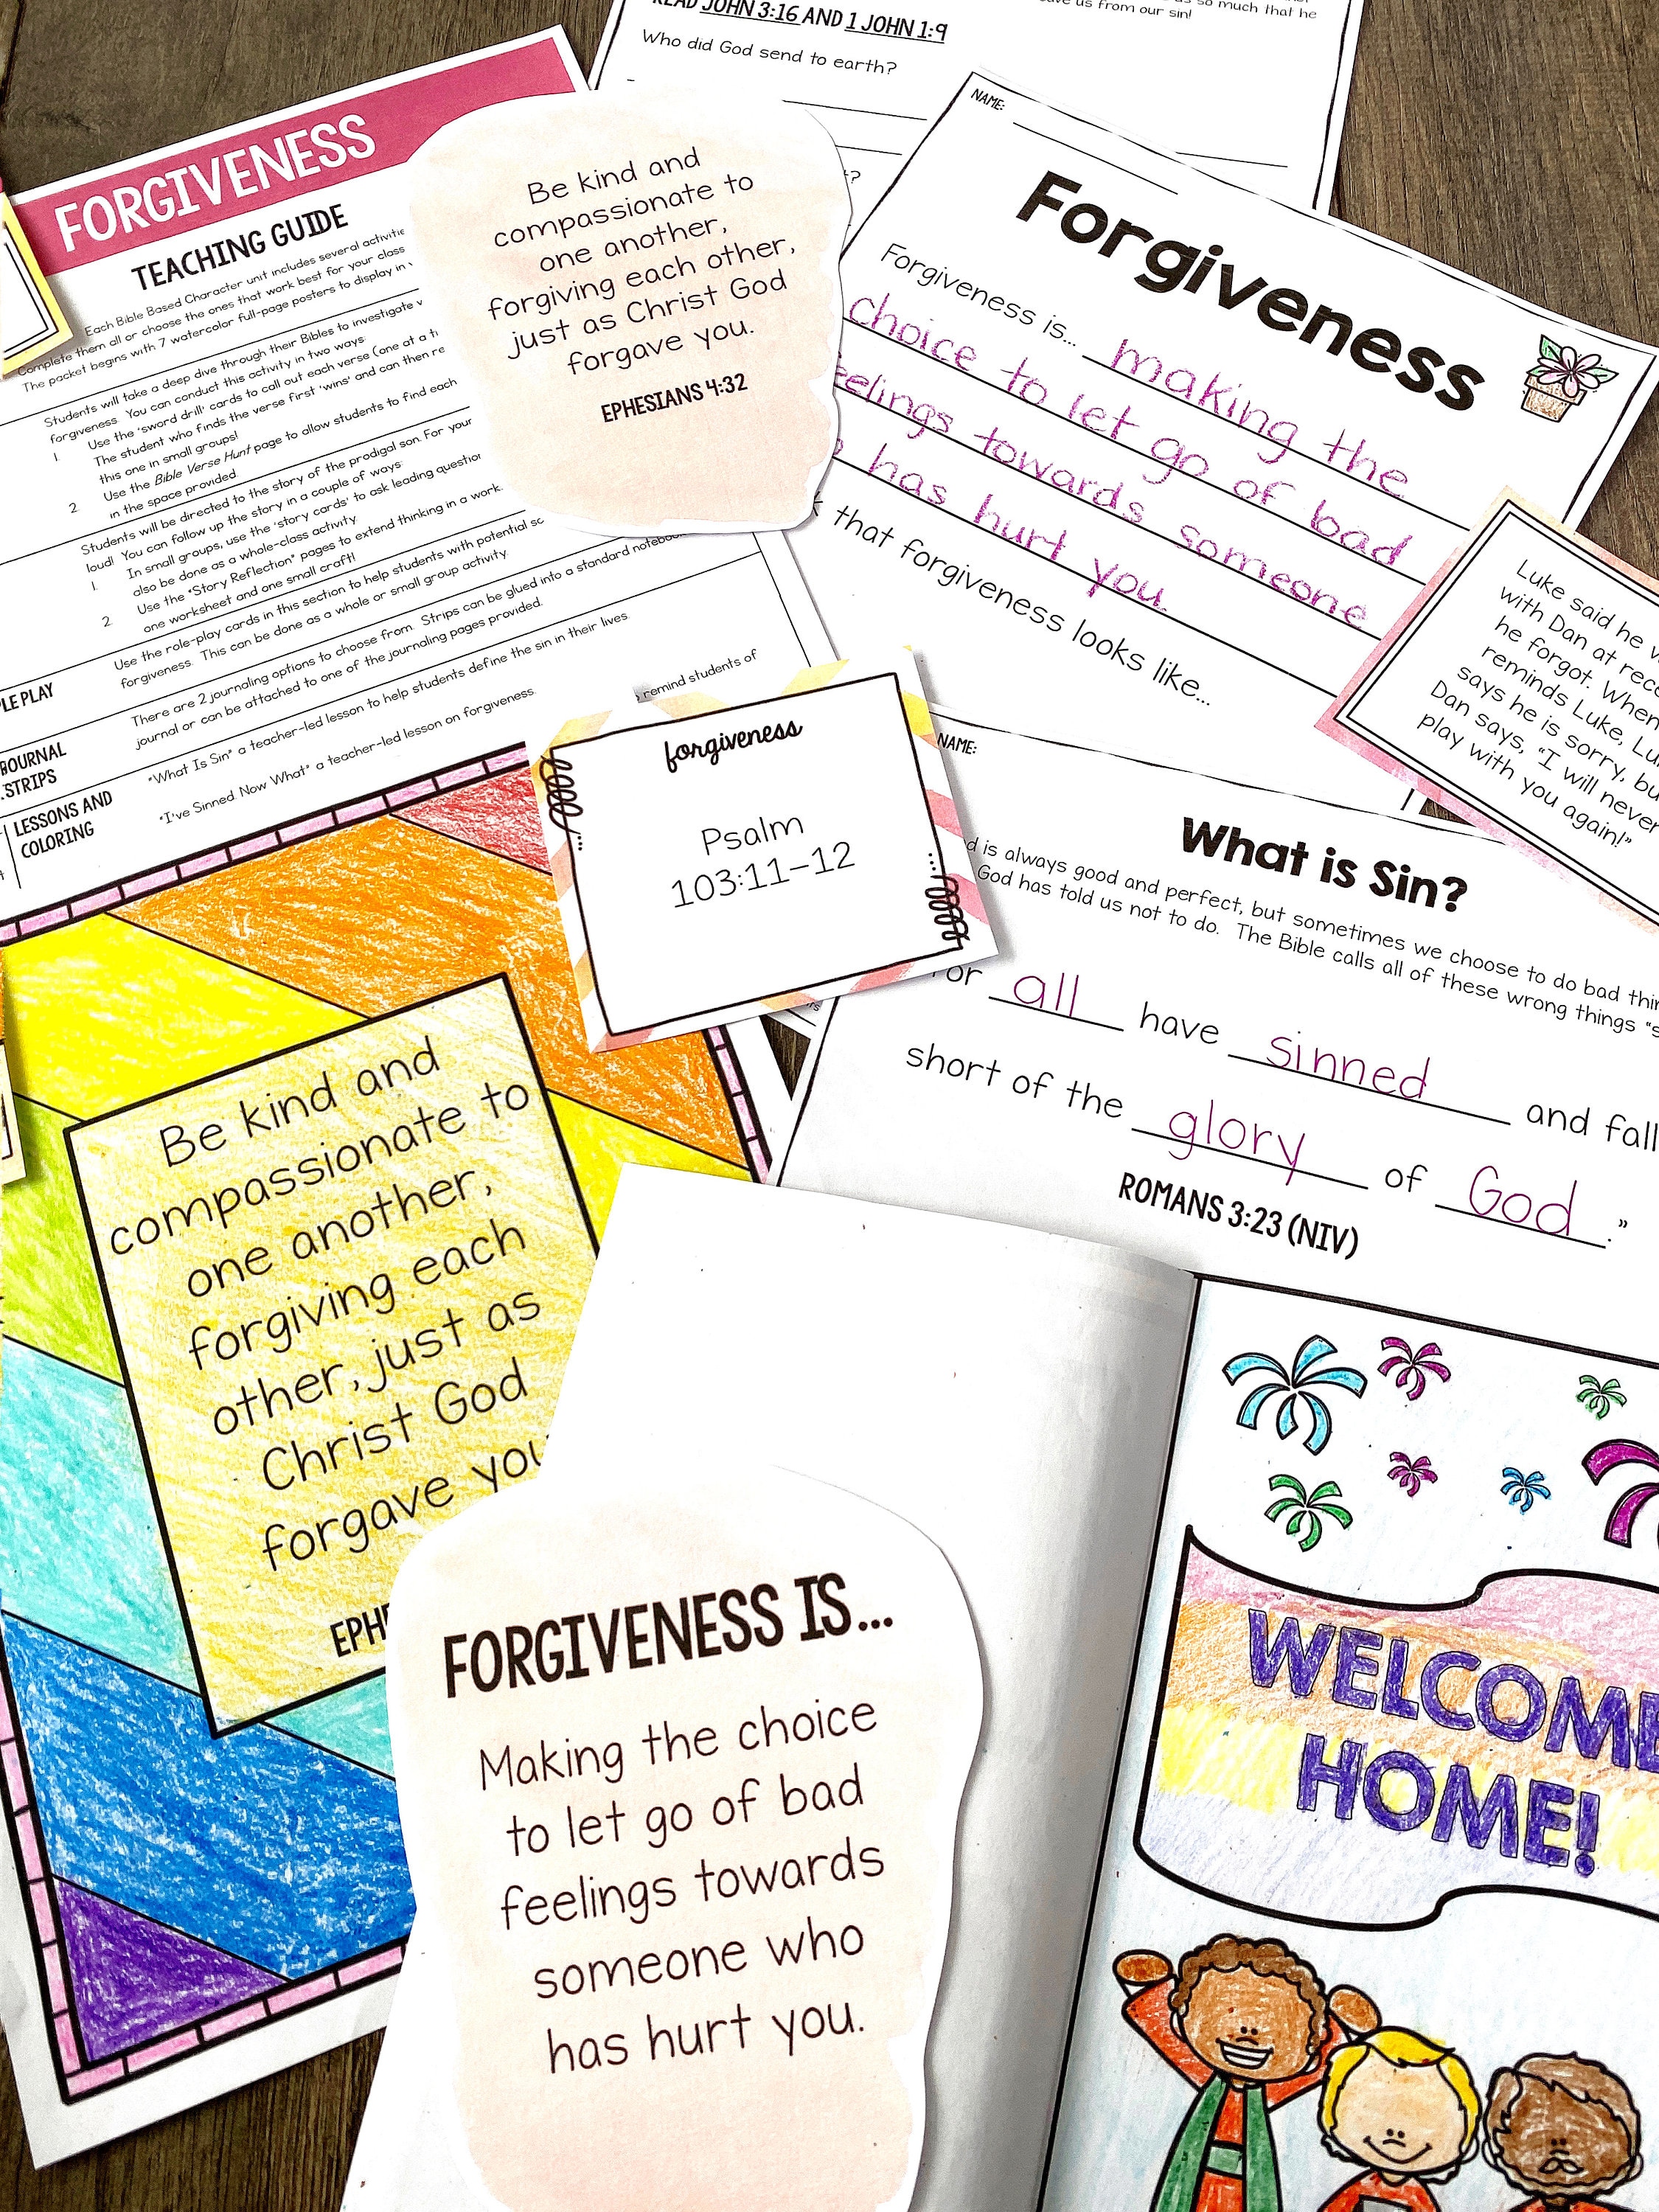 READ JOHN 3:16 AND 1 JOHN 1:9
so much that he
us from our sin!
Who did God send to earth?
FORGIVENESS
TEACHING GUIDE
Each Bible Based Character unit includes several
Complete them all or choose the ones that work best for your class
The packet begins with 7 watercolor full-page posters to display in
Students will take a deep dive through their Bibles to investigate
forgiveness. You can conduct this activity in two ways:
1. Use the 'sword drill' cards to call out each verse (one at a
The student who finds the verse first 'wins' and can then
this one in small groups!
2. Use the Bible Verse Hunt page to allow students to find each
in the space provided
Students will be directed to the story of the prodigal son. For your
loud! You can follow up the story in a couple of ways:
1. In small groups, use the 'story cards' to ask leading
also be done as a whole-class activity
2. Use the "Story Reflection" pages to extend thinking in a
one worksheet and one small craft!
PLAY
Use the role-play cards in this section to help students with potential
forgiveness. This can be done as a whole or small group activity
JOURNAL
STRIPS
There are 2 journaling options to choose from. Strips can be glued into a standard
journal or can be attached to one of the journaling pages provided.
LESSONS AND
COLORING
"What Is Sin" a teacher-led lesson to help students define the sin in their lives
"I've Sinned Now What" a teacher-led lesson on forgiveness.
remind students of
Be kind and
compassionate to
one another,
forgiving each other,
just as Christ God
forgave you.
EPHESIANS 4:32
NAME:
Forgiveness
Forgiveness is... making the
choice to let go of bad
feelings towards someone
has hurt you.
that forgiveness looks like...
Luke said he
with Dan at
he forgot. When
reminds Luke,
says he is sorry, but
Dan says, "I will never
play with you again!"
forgiveness
Psalm
103:11-12
NAME:
What is Sin?
is always good and perfect, but sometimes we choose to do bad
God has told us not to do. The Bible calls all of these wrong things
all have sinned and fall
short of the glory of God."
ROMANS 3:23 (NIV)
Be kind and
compassionate to
one another,
forgiving each
other, just as
Christ God
forgave
FORGIVENESS IS...
Making the choice
to let go of bad
feelings towards
someone who
has hurt you.
WELCOME
HOME!